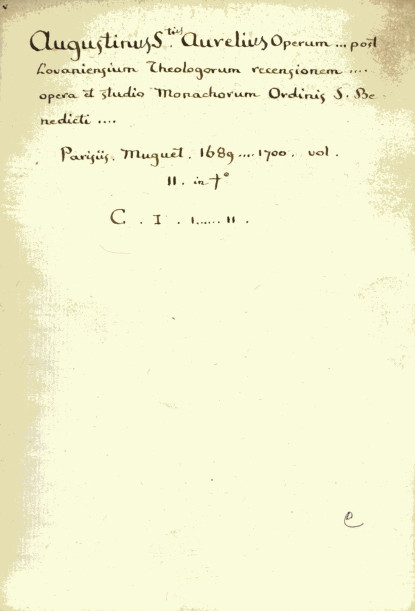 Augustinus S.tius Aurelius Operum ... post
Lovaniensium Theologorum recensionem ....
opera et studio Monachorum Ordinis S. Be
nedicti ....
Parisiis. Muguet. 1689 .... 1700. vol.
11. in f°
C . I . 1...... 11 .
e